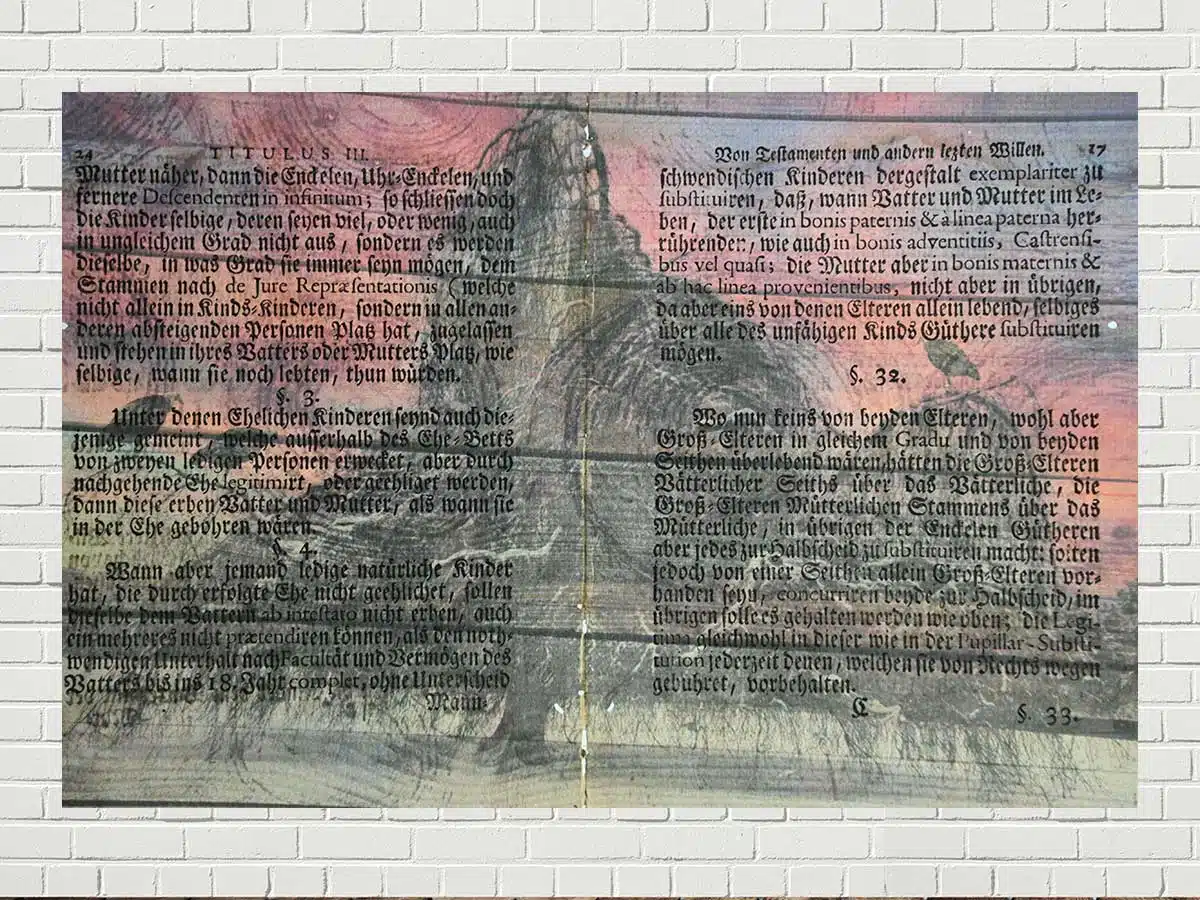 24 TITULUS III.
Mutter näher, dann die Enckelen, Uhr-Enckelen, und
fernere Descendenten in infinitum; so schliessen doch
die Kinder selbige, deren seyen viel, oder wenig, auch
in ungleichem Grad nicht aus, sondern es werden
dieselbe, in was Grad sie immer seyn mögen, dem
Stammen nach de Jure Repræsentationis (welche
nicht allein in Kinds-Kinderen, sondern in allen an-
deren absteigenden Personen Platz hat, zugelassen
und stehen in ihres Vatters oder Mutters Platz, wie
selbige, wann sie noch lebten, thun würden.
§. 3.
Unter denen Ehelichen Kinderen seynd auch die-
jenige gemeint, welche ausserhalb des Ehe-Betts
von zweyen ledigen Personen erwecket, aber durch
nachgehende Ehe legitimirt, oder geehliget werden,
dann diese erben Vatter und Mutter, als wann sie
in der Ehe gebohren wären.
§. 4.
Wann aber jemand ledige natürliche Kinder
hat, die durch erfolgte Ehe nicht geehlichet, sollen
dieselbe dem Vattern ab intestato nicht erben, auch
ein mehreres nicht prætendiren können, als den noth-
wendigen Unterhalt nach Facultät und Vermögen des
Vatters bis ins 18. Jahr complet, ohne Unterscheid
Mann-
Von Testamenten und andern letzten Willen. 17
schwendischen Kinderen dergestalt exemplariter zu
substituiren, daß, wann Vatter und Mutter im Le-
ben, der erste in bonis paternis & à linea paterna her-
rührenden, wie auch in bonis adventitiis, Castrensi-
bus vel quasi; die Mutter aber in bonis maternis &
ab hac linea provenientibus, nicht aber in übrigen,
da aber eins von denen Elteren allein lebend, selbiges
über alle des unfähigen Kinds Güthere substituiren
mögen.
§. 32.
Wo nun keins von beyden Elteren, wohl aber
Groß-Elteren in gleichem Gradu und von beyden
Seithen überlebend wären, hätten die Groß-Elteren
Vätterlicher Seiths über das Vätterliche, die
Groß-Elteren Mütterlichen Stammens über das
Mütterliche, in übrigen der Enckelen Gütheren
aber jedes zur Halbscheid zu substituiren macht: solten
jedoch von einer Seithen allein Groß-Elteren vor-
handen seyn, concurriren beyde zur Halbscheid, im
übrigen solle es gehalten werden wie oben; die Legi-
tima gleichwohl in dieser wie in der Pupillar-Substi-
tution jederzeit denen, welchen sie von Rechts wegen
gebühret, vorbehalten.
C §. 33.